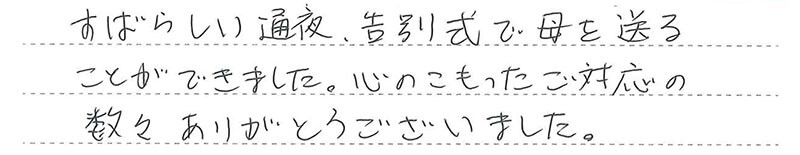 すばらしい通夜、告別式で母を送る
ことができました。心のこもったご対応の
数々ありがとうございました。